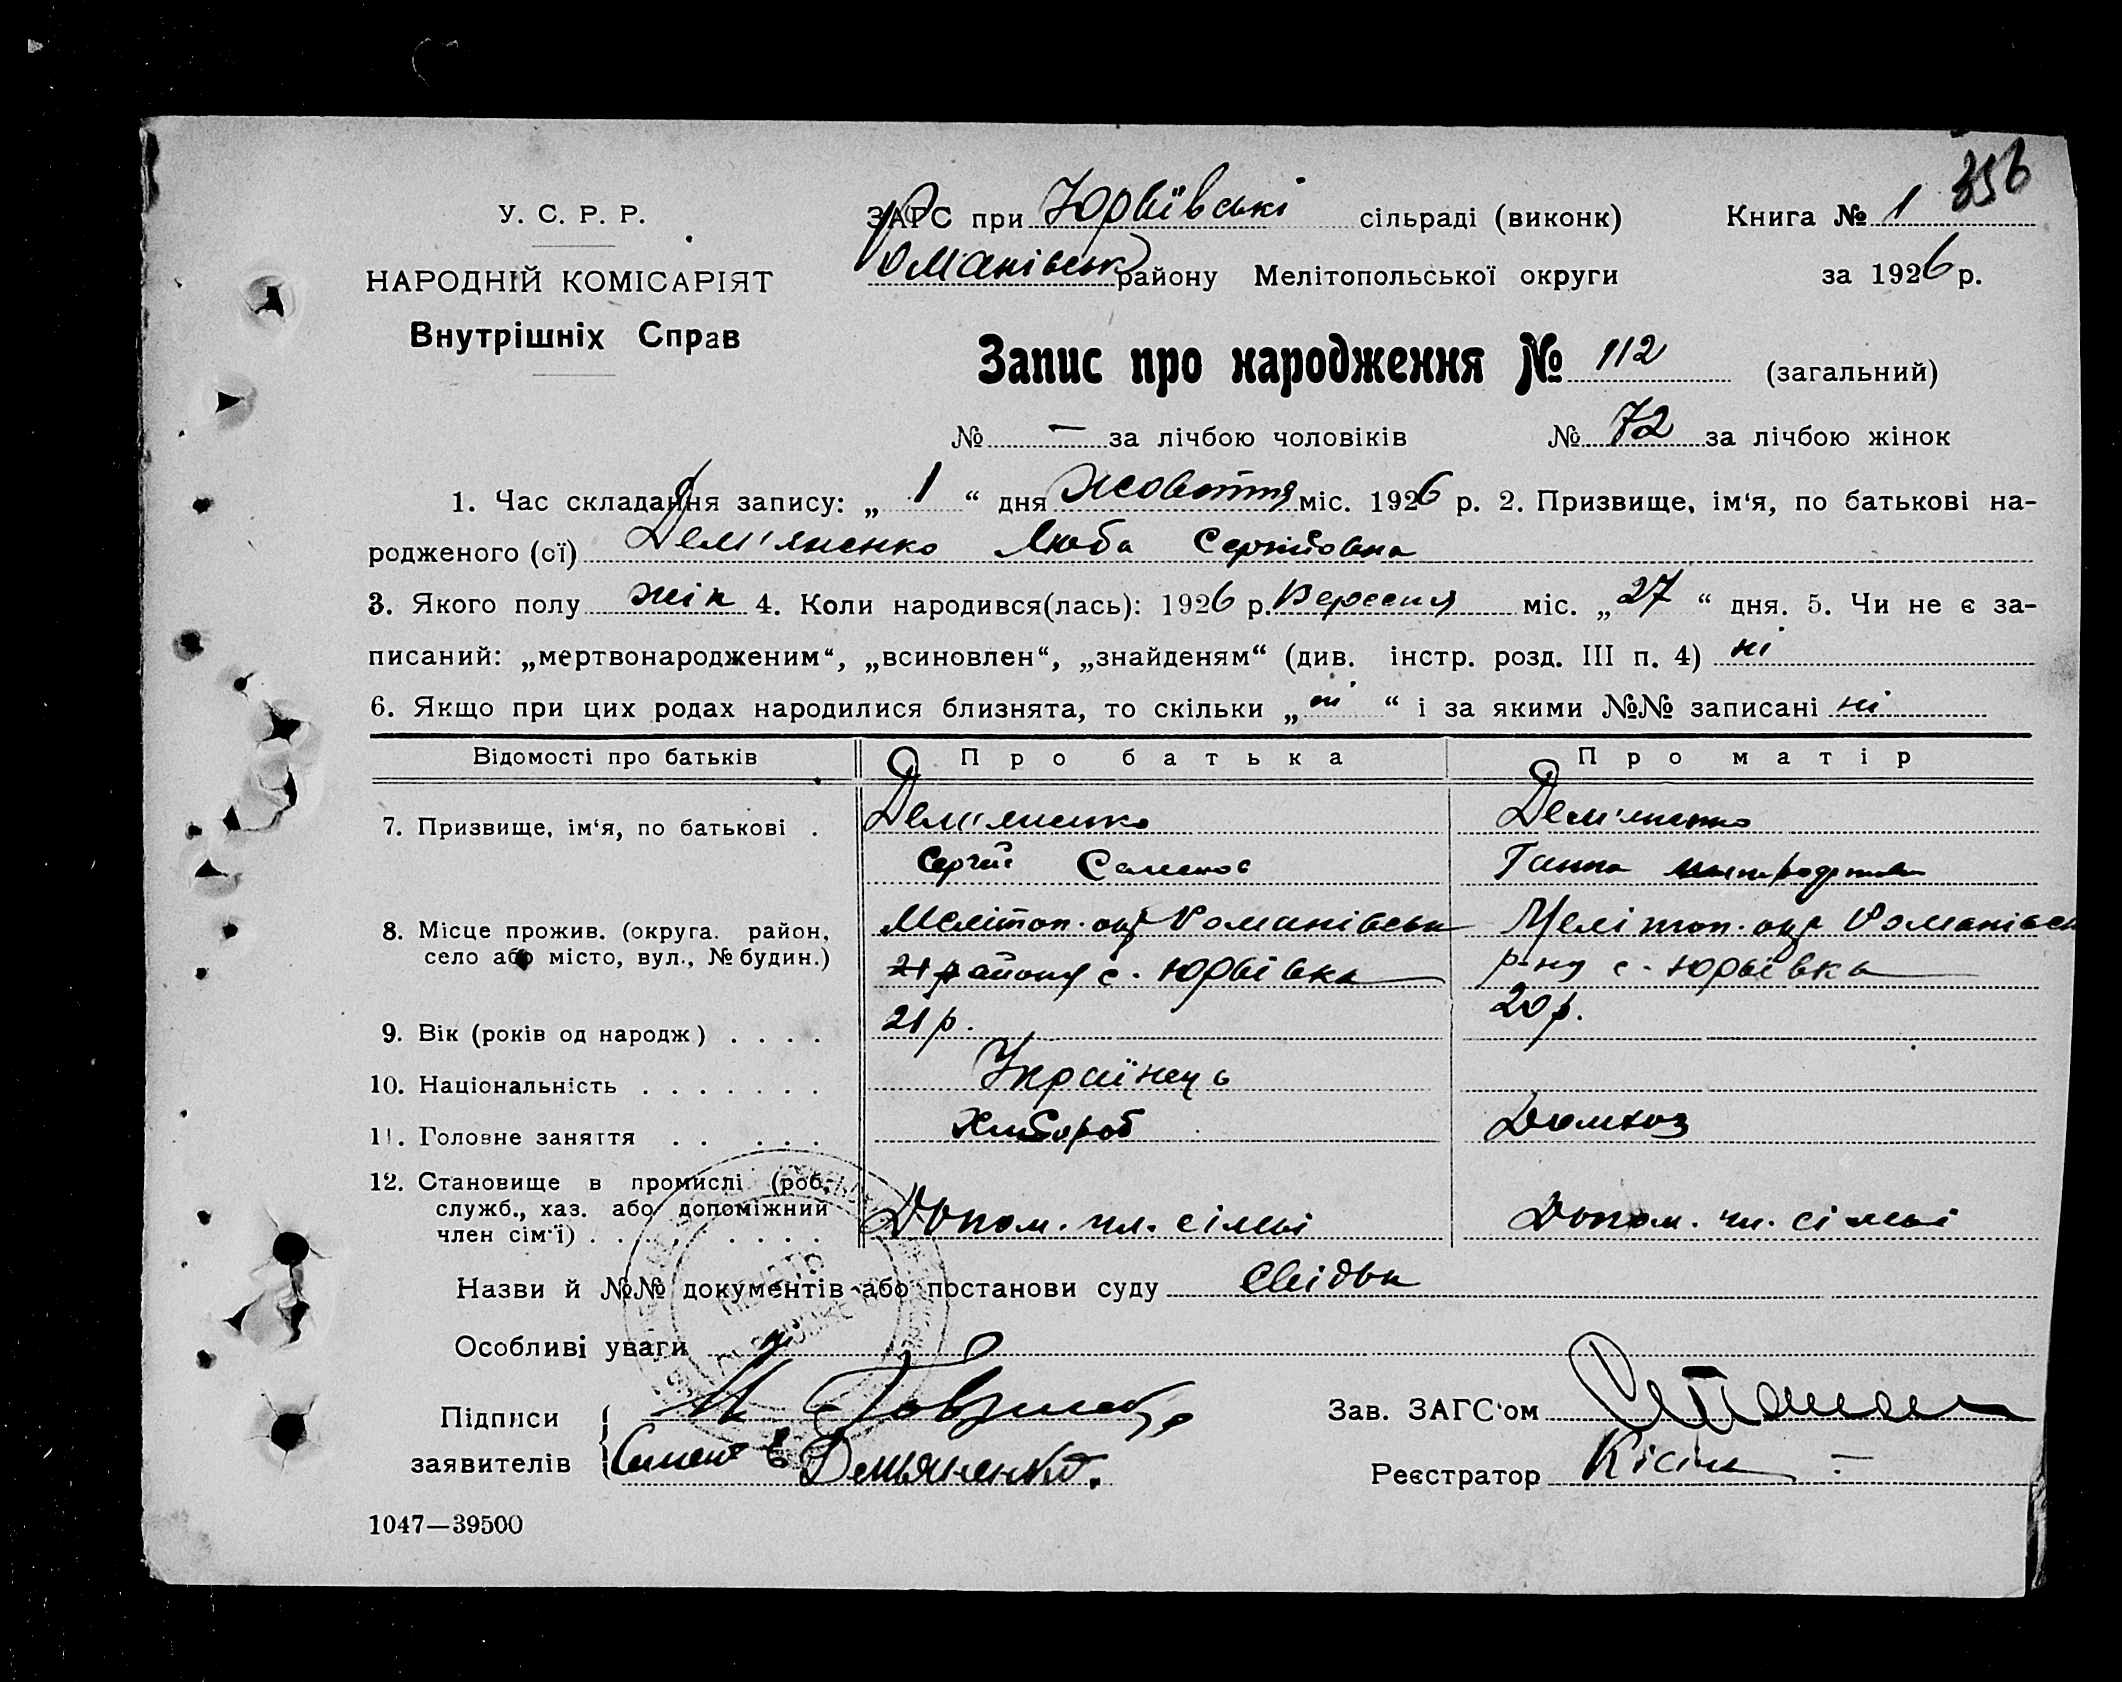 356
У. С. Р. Р.
НАРОДНІЙ КОМІСАРІЯТ
Внутрішніх Справ
ЗАГС при Юрьївські сільраді (виконк) Книга № 1
Романівськ району Мелітопольської округи за 1926 р.
Запис про народження № 112 (загальний)
№ — за лічбою чоловіків № 72 за лічбою жінок
1. Час складання запису: „ 1 “ дня Жовття міс. 1926 р. 2. Призвище, ім‘я, по батькові на-
родженого (ої) Дем'яненко Люба Сергійовна
3. Якого полу жін 4. Коли народився(лась): 1926 р. Вересня міс. „ 27 “ дня. 5. Чи не є за-
писаний: „мертвонародженим“, „всиновлен“, „знайденям“ (див. інстр. розд. III п. 4) ні
6. Якщо при цих родах народилися близнята, то скільки „ ні “ і за якими №№ записані ні
Відомості про батьків Про батька Про матір
7. Призвище, ім‘я, по батькові . Дем'яненко Дем'яненко
Сергій Семенов Ганна
8. Місце прожив. (округа. район, Меліттоп. окр Романівськ Мелітоп. окр Романівсь
село або місто, вул., № будин.) району с. Юрьївка р-ну с. Юрьївка
9. Вік (років од народж) . . . . 21 р. 20 р.
10. Національність . . . . . . . Українець
11. Головне заняття . . . . . Хлібороб Домхоз
12. Становище в промислі (роб.,
служб., хаз. або допоміжний
член сім‘ї) . . . . . . . . . Допом. чл. сімьі Допом. чл. сімьі
Назви й №№ документів або постанови суду Свідки
Особливі уваги
Підписи
Зав. ЗАГС‘ом
заявителів Семен Демьяненко.
Реєстратор
1047—39500